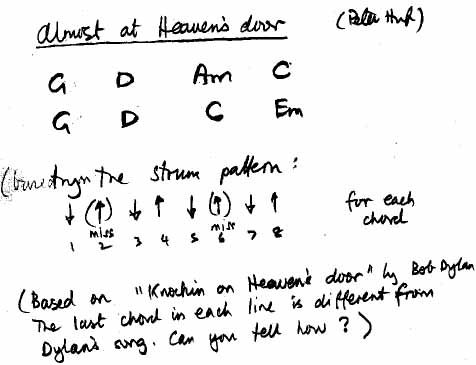 Almost at Heaven's door (Peter
G D Am C
G D C Em
the strum pattern :
↓ (↑) ↓ ↑ ↓ (↑) ↓ ↑ for each
miss miss chord
1 2 3 4 5 6 7 8
(Based on "Knockin on Heaven's door" by Bob Dylan
The last chord in each line is different from
Dylan's song. Can you tell how ?)